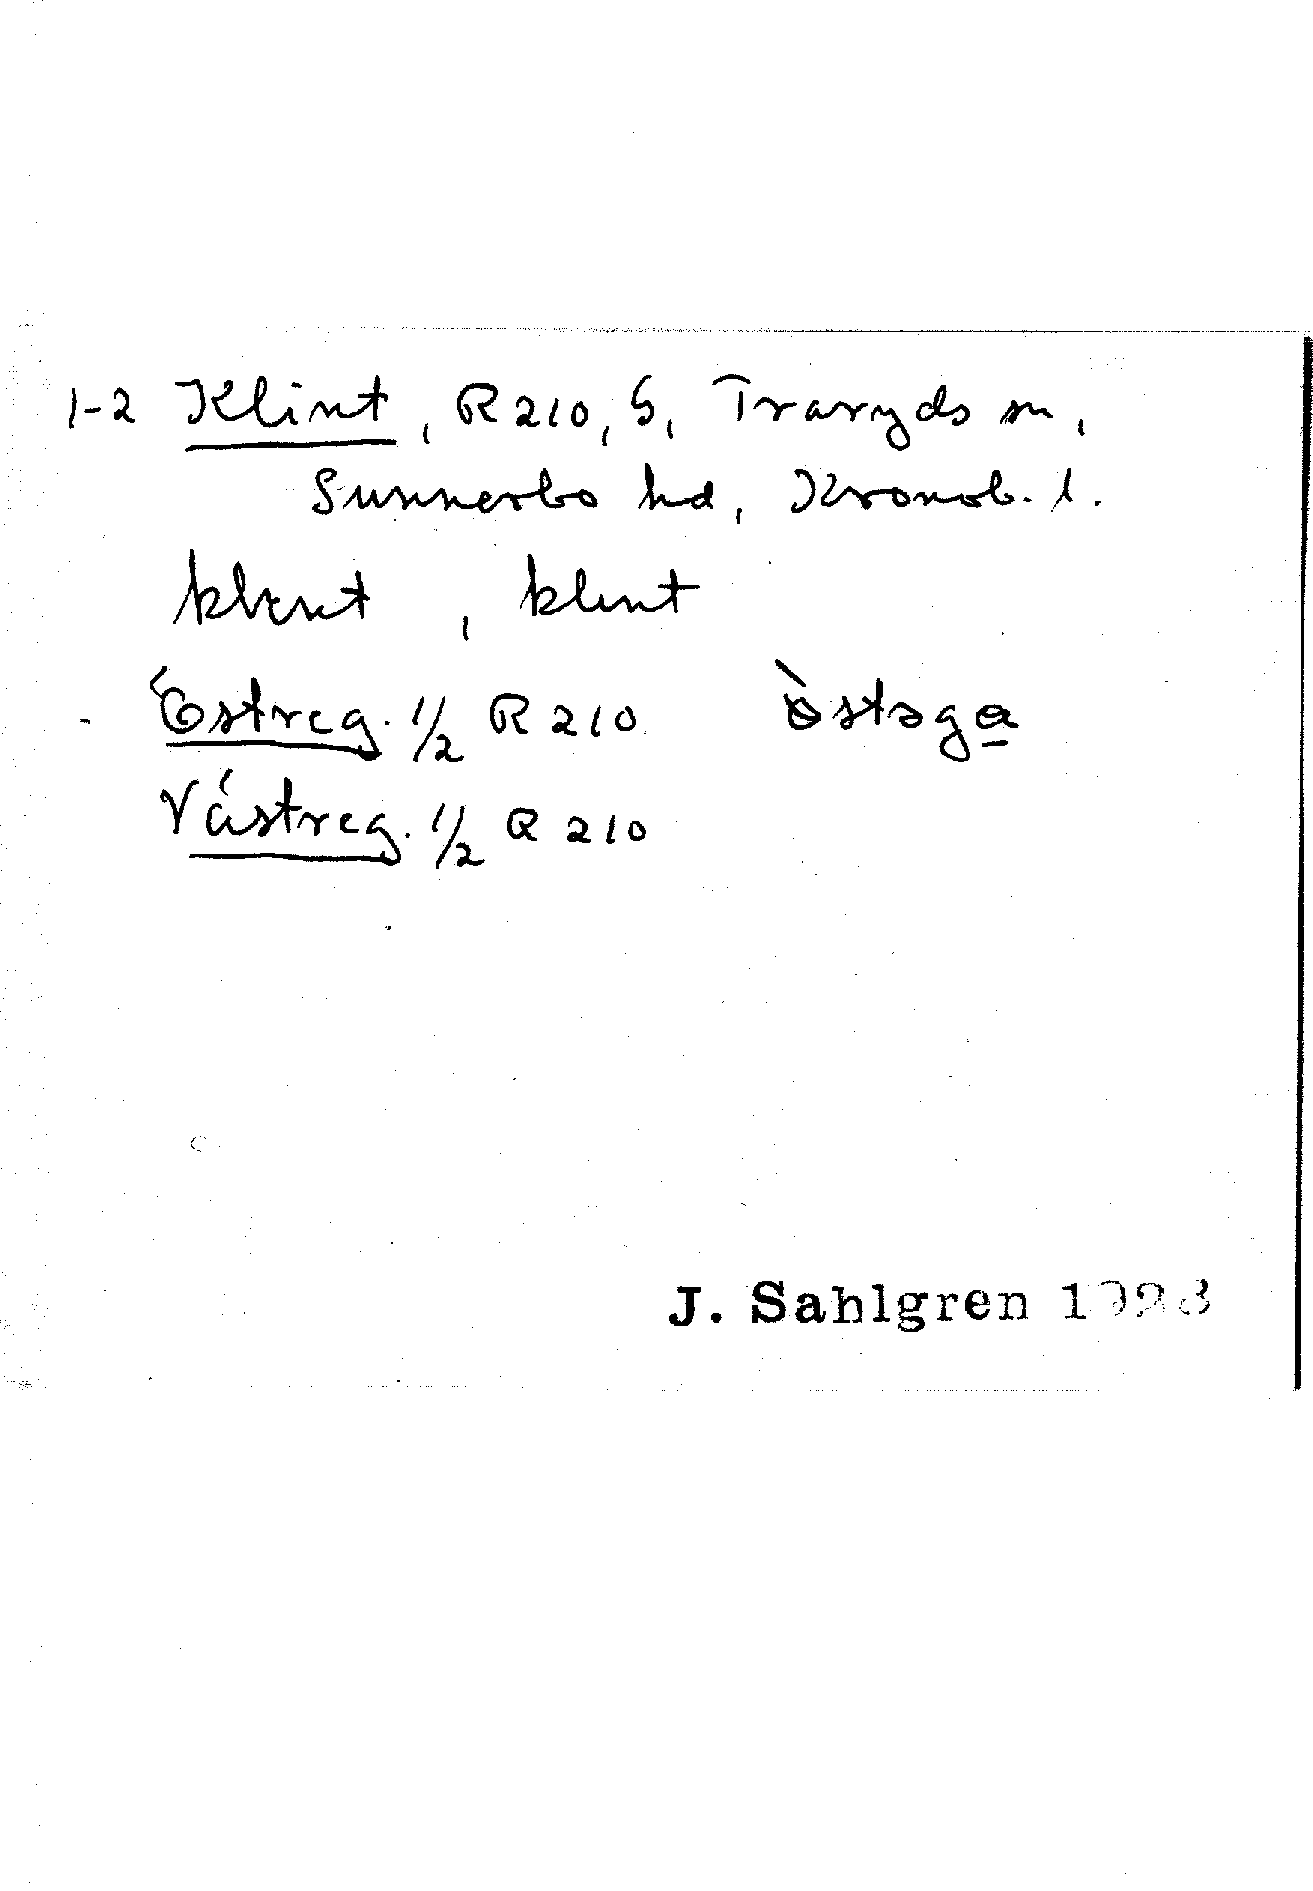 1-2 Klint, R 210, S, Traryds sn,
Sunnerbo hd, Kronob. l.
klent, klint
Östreg. 1/2 R 210 östəga
Västreg. 1/2 R 210
J. Sahlgren 1928